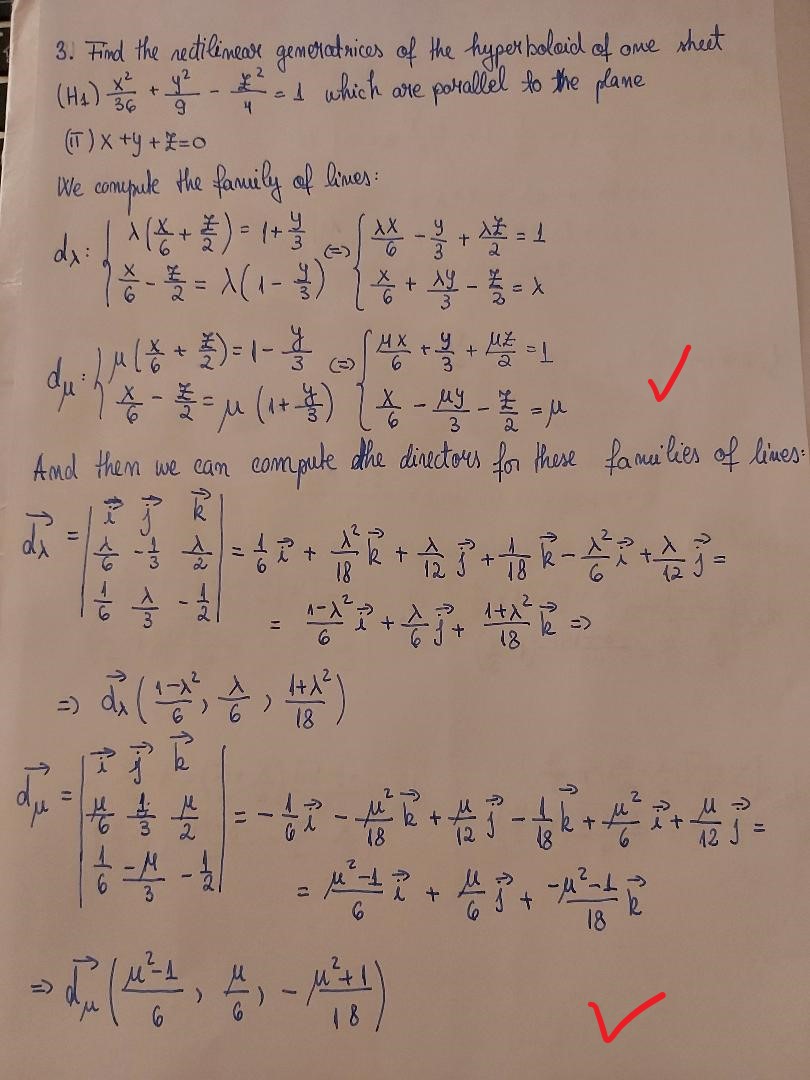 3. Find the rectilinear generatrices of the hyperboloid of one sheet
(H1) x²/36 + y²/9 - z²/4 = 1 which are parallel to the plane
(π) x + y + z = 0
We compute the family of lines:
dλ: { λ(x/6 + z/2) = 1 + y/3 (=) { λx/6 - y/3 + λz/2 = 1
x/6 - z/2 = λ(1 - y/3) x/6 + λy/3 - z/2 = λ
dμ: { μ(x/6 + z/2) = 1 - y/3 (=) { μx/6 + y/3 + μz/2 = 1
x/6 - z/2 = μ(1 + y/3) x/6 - μy/3 - z/2 = μ
And then we can compute the directors for these families of lines:
d⃗λ = | i⃗ j⃗ k⃗ |
| λ/6 -1/3 λ/2 | = 1/6 i⃗ + λ²/18 k⃗ + λ/12 j⃗ + 1/18 k⃗ - λ²/6 i⃗ + λ/12 j⃗ =
| 1/6 λ/3 -1/2 | = (1-λ²)/6 i⃗ + λ/6 j⃗ + (1+λ²)/18 k⃗ =>
=> d⃗λ ((1-λ²)/6, λ/6, (1+λ²)/18)
d⃗μ = | i⃗ j⃗ k⃗ |
| μ/6 1/3 μ/2 | = -1/6 i⃗ - μ²/18 k⃗ + μ/12 j⃗ - 1/18 k⃗ + μ²/6 i⃗ + μ/12 j⃗ =
| 1/6 -μ/3 -1/2 | = (μ²-1)/6 i⃗ + μ/6 j⃗ + (-μ²-1)/18 k⃗
=> d⃗μ ((μ²-1)/6, μ/6, -(μ²+1)/18)